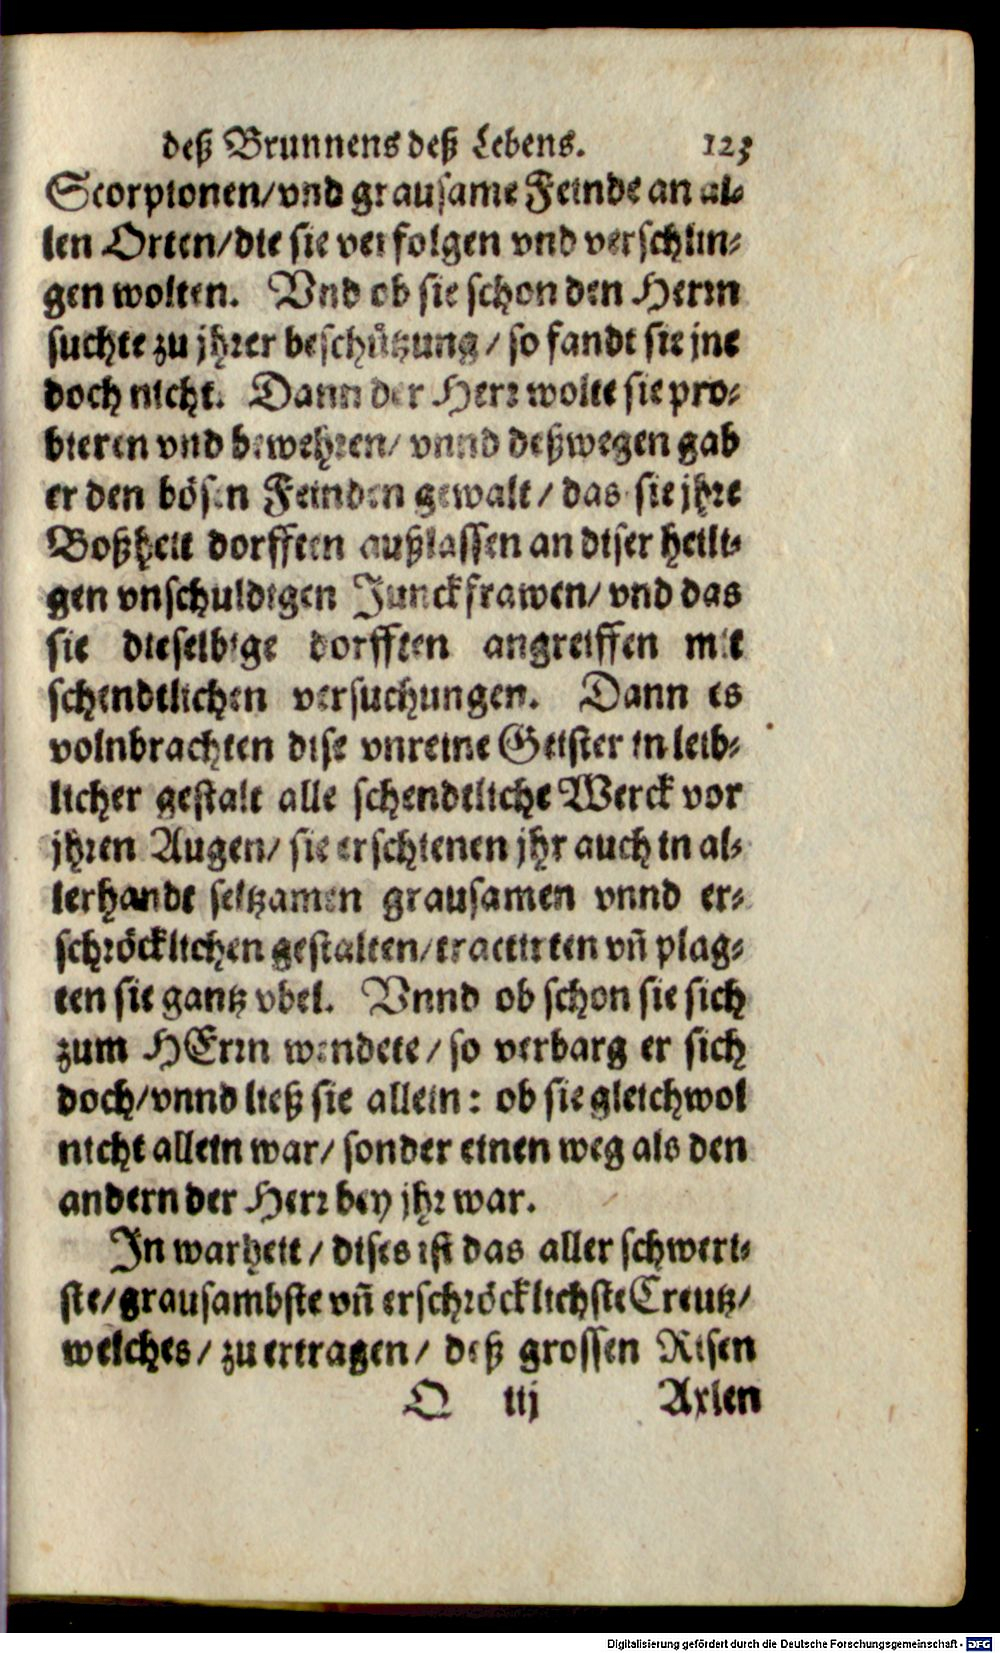 deß Brunnens deß Lebens. 123
Scorpionen/vnd grausame Feinde an al-
len Orten/die sie verfolgen vnd verschlin-
gen wolten. Vnd ob sie schon den Herrn
suchte zu jhrer beschützung/so fandt sie jne
doch nicht. Dann der Herr wolte sie pro-
bieren vnd bewehren/vnnd deßwegen gab
er den bösen Feinden gewalt/das sie jhre
Boßheit dorfften außlassen an diser heili-
gen vnschuldigen Junckfrawen/vnd das
sie dieselbige dorfften angreiffen mit
schendtlichen versuchungen. Dann es
volnbrachten dise vnreine Geister in leib-
licher gestalt alle schendtliche Werck vor
jhren Augen/sie erschienen jhr auch in al-
lerhandt seltzamen grausamen vnnd er-
schröcklichen gestalten/tractirten vñ plag-
ten sie gantz vbel. Vnnd ob schon sie sich
zum HErrn wendete/so verbarg er sich
doch/vnnd ließ sie allein: ob sie gleichwol
nicht allein war/sonder einen weg als den
andern der Herr bey jhr war.
In warheit/dises ist das aller schweri-
ste/grausambste vñ erschröcklichste Creutz/
welches/zu ertragen/deß grossen Risen
Q iij Axlen
Digitalisierung gefördert durch die Deutsche Forschungsgemeinschaft - DFG